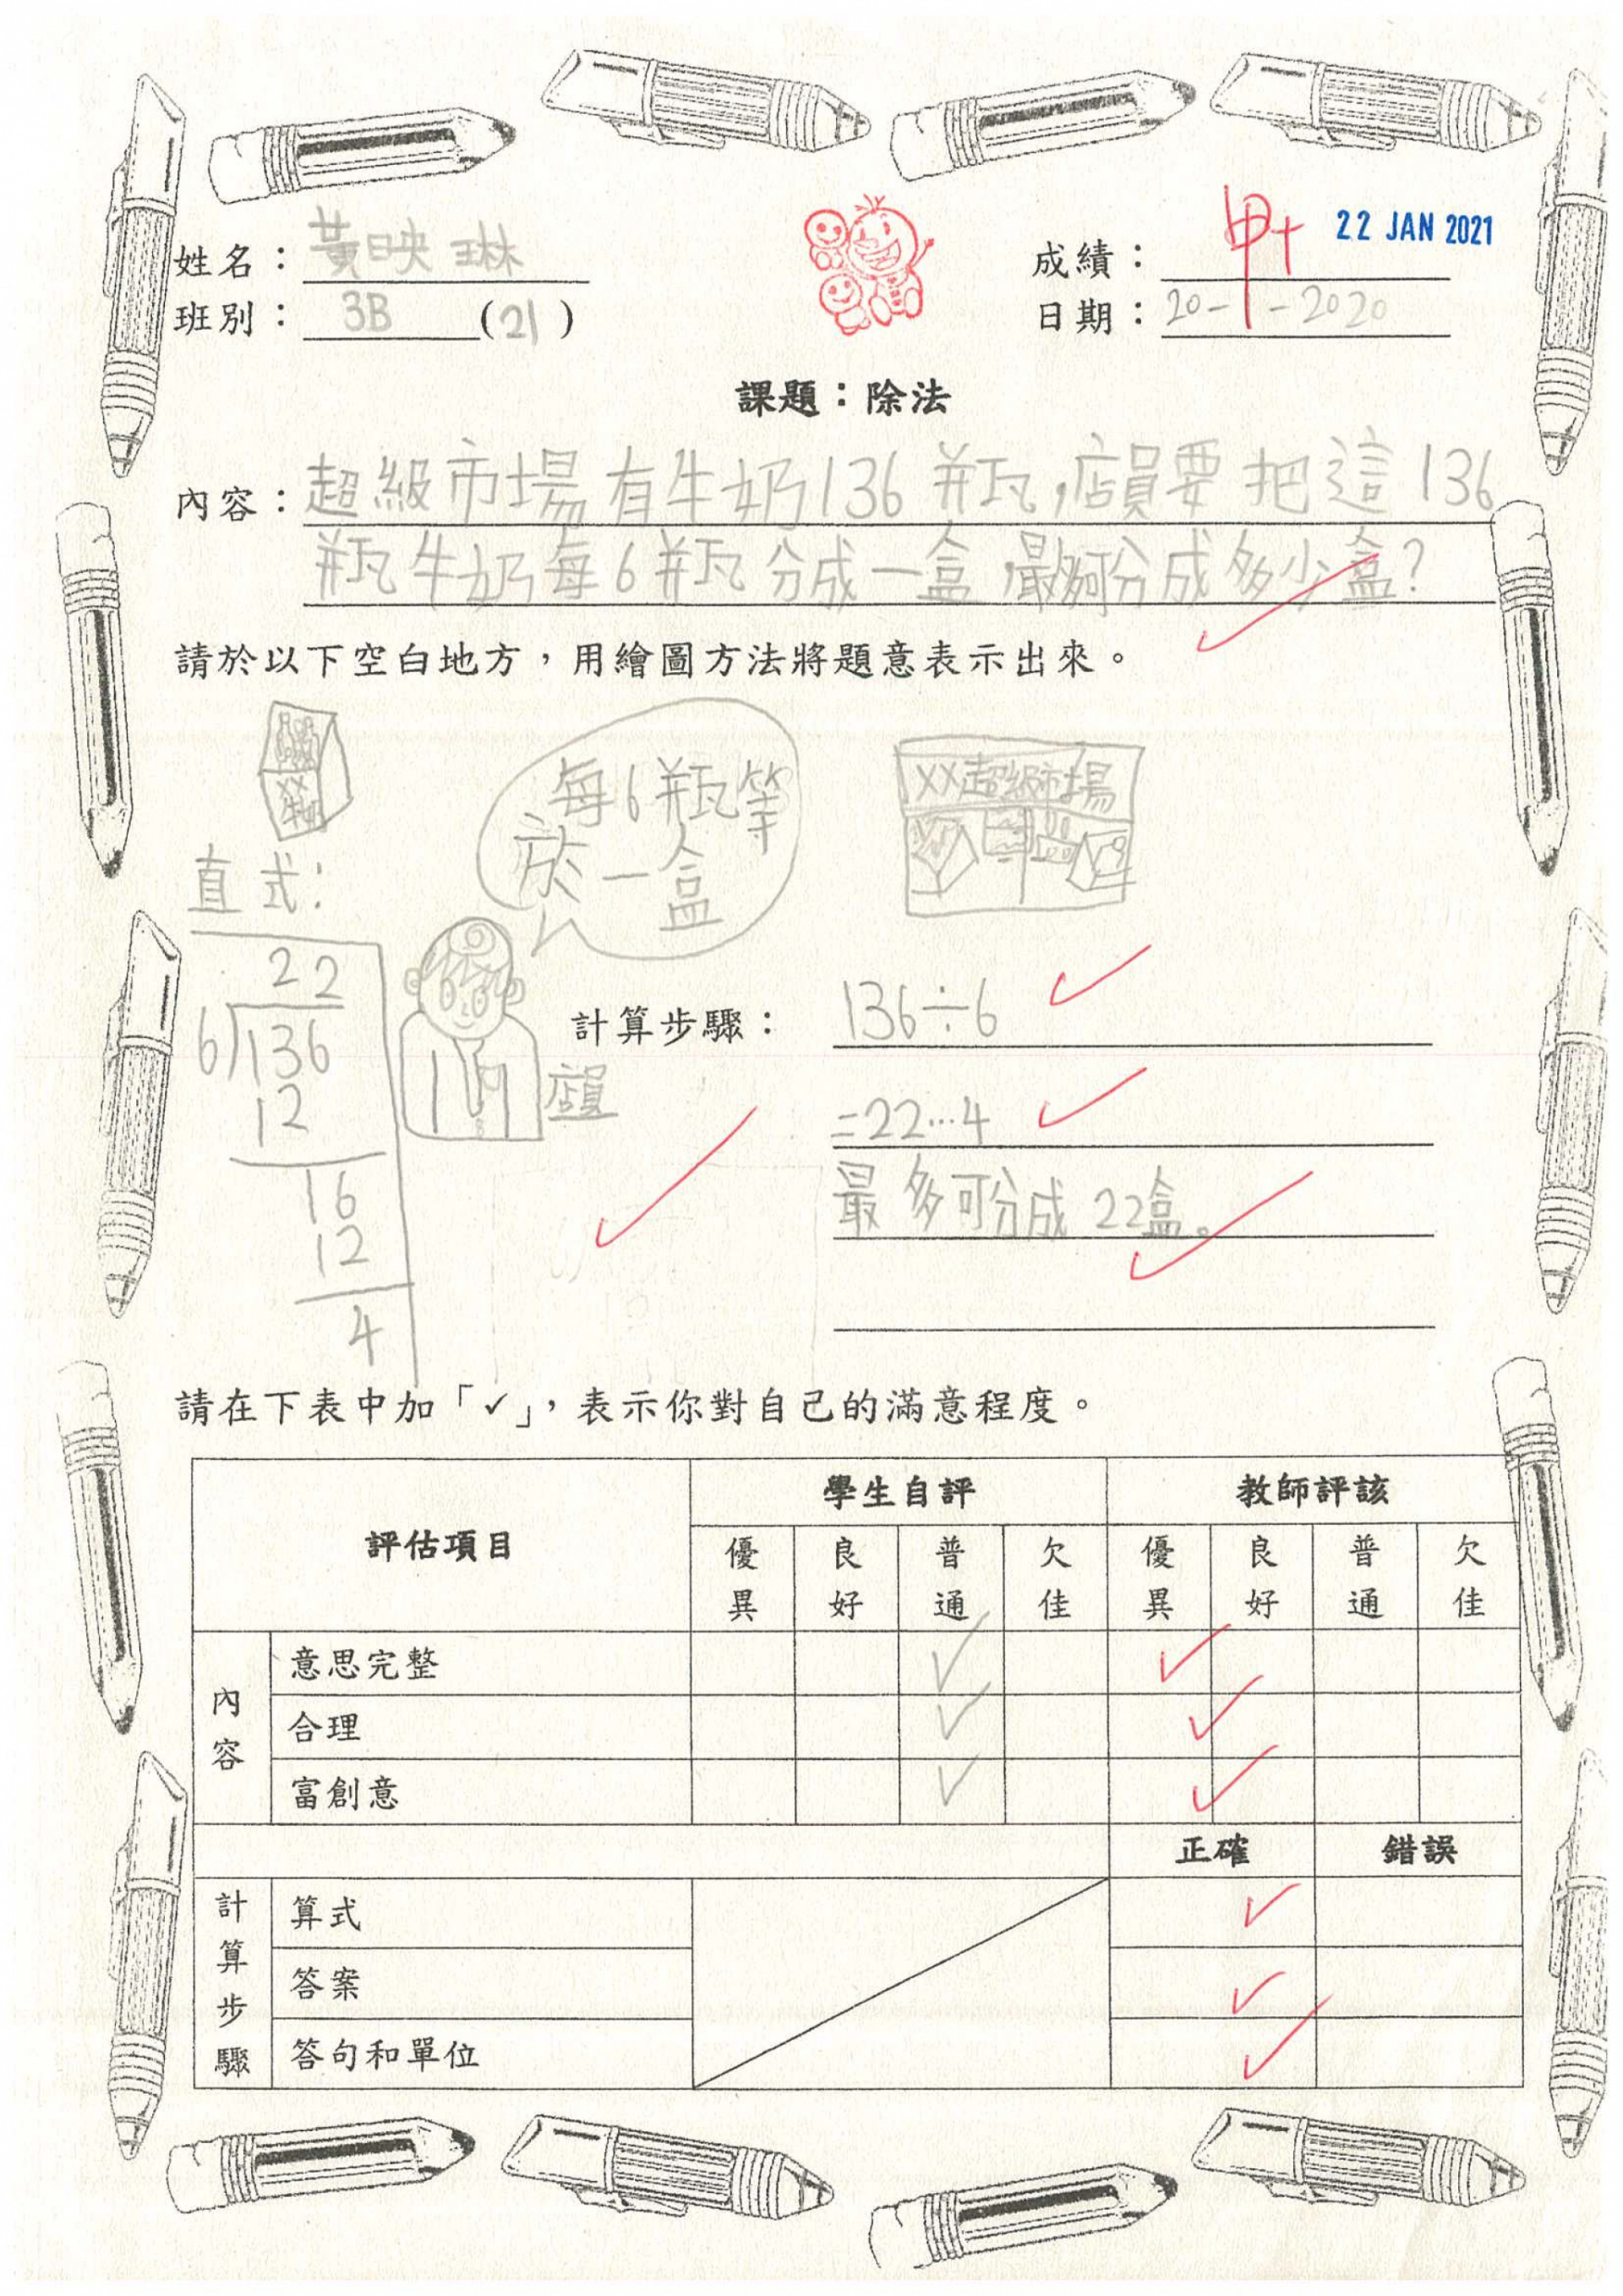 姓名：黃映琳
班別：3B (21)
成績：甲+
22 JAN 2021
日期：20-1-2020
課題：除法
內容：超級市場有牛奶136瓶,店員要把這136
瓶牛奶每6瓶分成一盒,最多可分成多少盒?
請於以下空白地方，用繪圖方法將題意表示出來。
XX
牛奶
每6瓶等
於一盒
XX超級市場
直式:
22
6)136
12
16
12
4
店員
計算步驟：136÷6
=22…4
最多可分成22盒。
請在下表中加「✓」，表示你對自己的滿意程度。
評估項目 學生自評 教師評該
優異 良好 普通 欠佳 優異 良好 普通 欠佳
內容
意思完整 ✓ ✓
合理 ✓ ✓
富創意 ✓ ✓
正確 錯誤
計算步驟
算式 ✓
答案 ✓
答句和單位 ✓